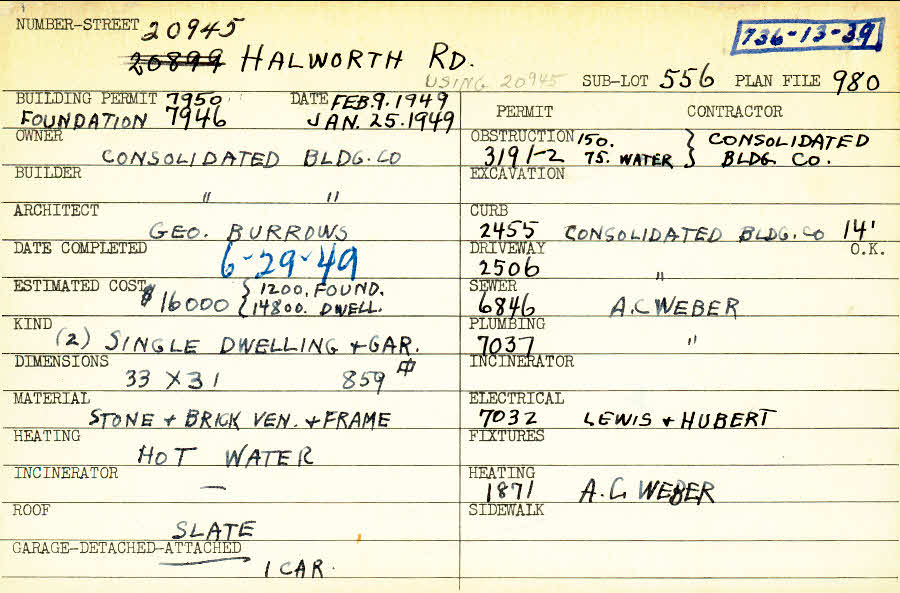 NUMBER-STREET 20945
736-13-39
20899 HALWORTH RD.
USING 20945 SUB-LOT 556 PLAN FILE 980
BUILDING PERMIT 7950 DATE FEB. 9. 1949
FOUNDATION 7946 JAN. 25. 1949
OWNER
CONSOLIDATED BLDG. CO
BUILDER
" "
ARCHITECT
GEO. BURROWS
DATE COMPLETED
6-29-49
ESTIMATED COST $16000 { 1200. FOUND.
14800. DWELL.
KIND
(2) SINGLE DWELLING + GAR.
DIMENSIONS
33 X 31 859
MATERIAL
STONE + BRICK VEN. + FRAME
HEATING
HOT WATER
INCINERATOR
—
ROOF
SLATE
GARAGE-DETACHED-ATTACHED
1 CAR.
PERMIT CONTRACTOR
OBSTRUCTION 150. } CONSOLIDATED
3191-2 75. WATER BLDG. CO.
EXCAVATION
CURB
2455 CONSOLIDATED BLDG. CO 14'
DRIVEWAY O.K.
2506 "
SEWER
6846 A.C WEBER
PLUMBING
7037 "
INCINERATOR
ELECTRICAL
7032 LEWIS + HUBERT
FIXTURES
HEATING
1871 A.C. WEBER
SIDEWALK